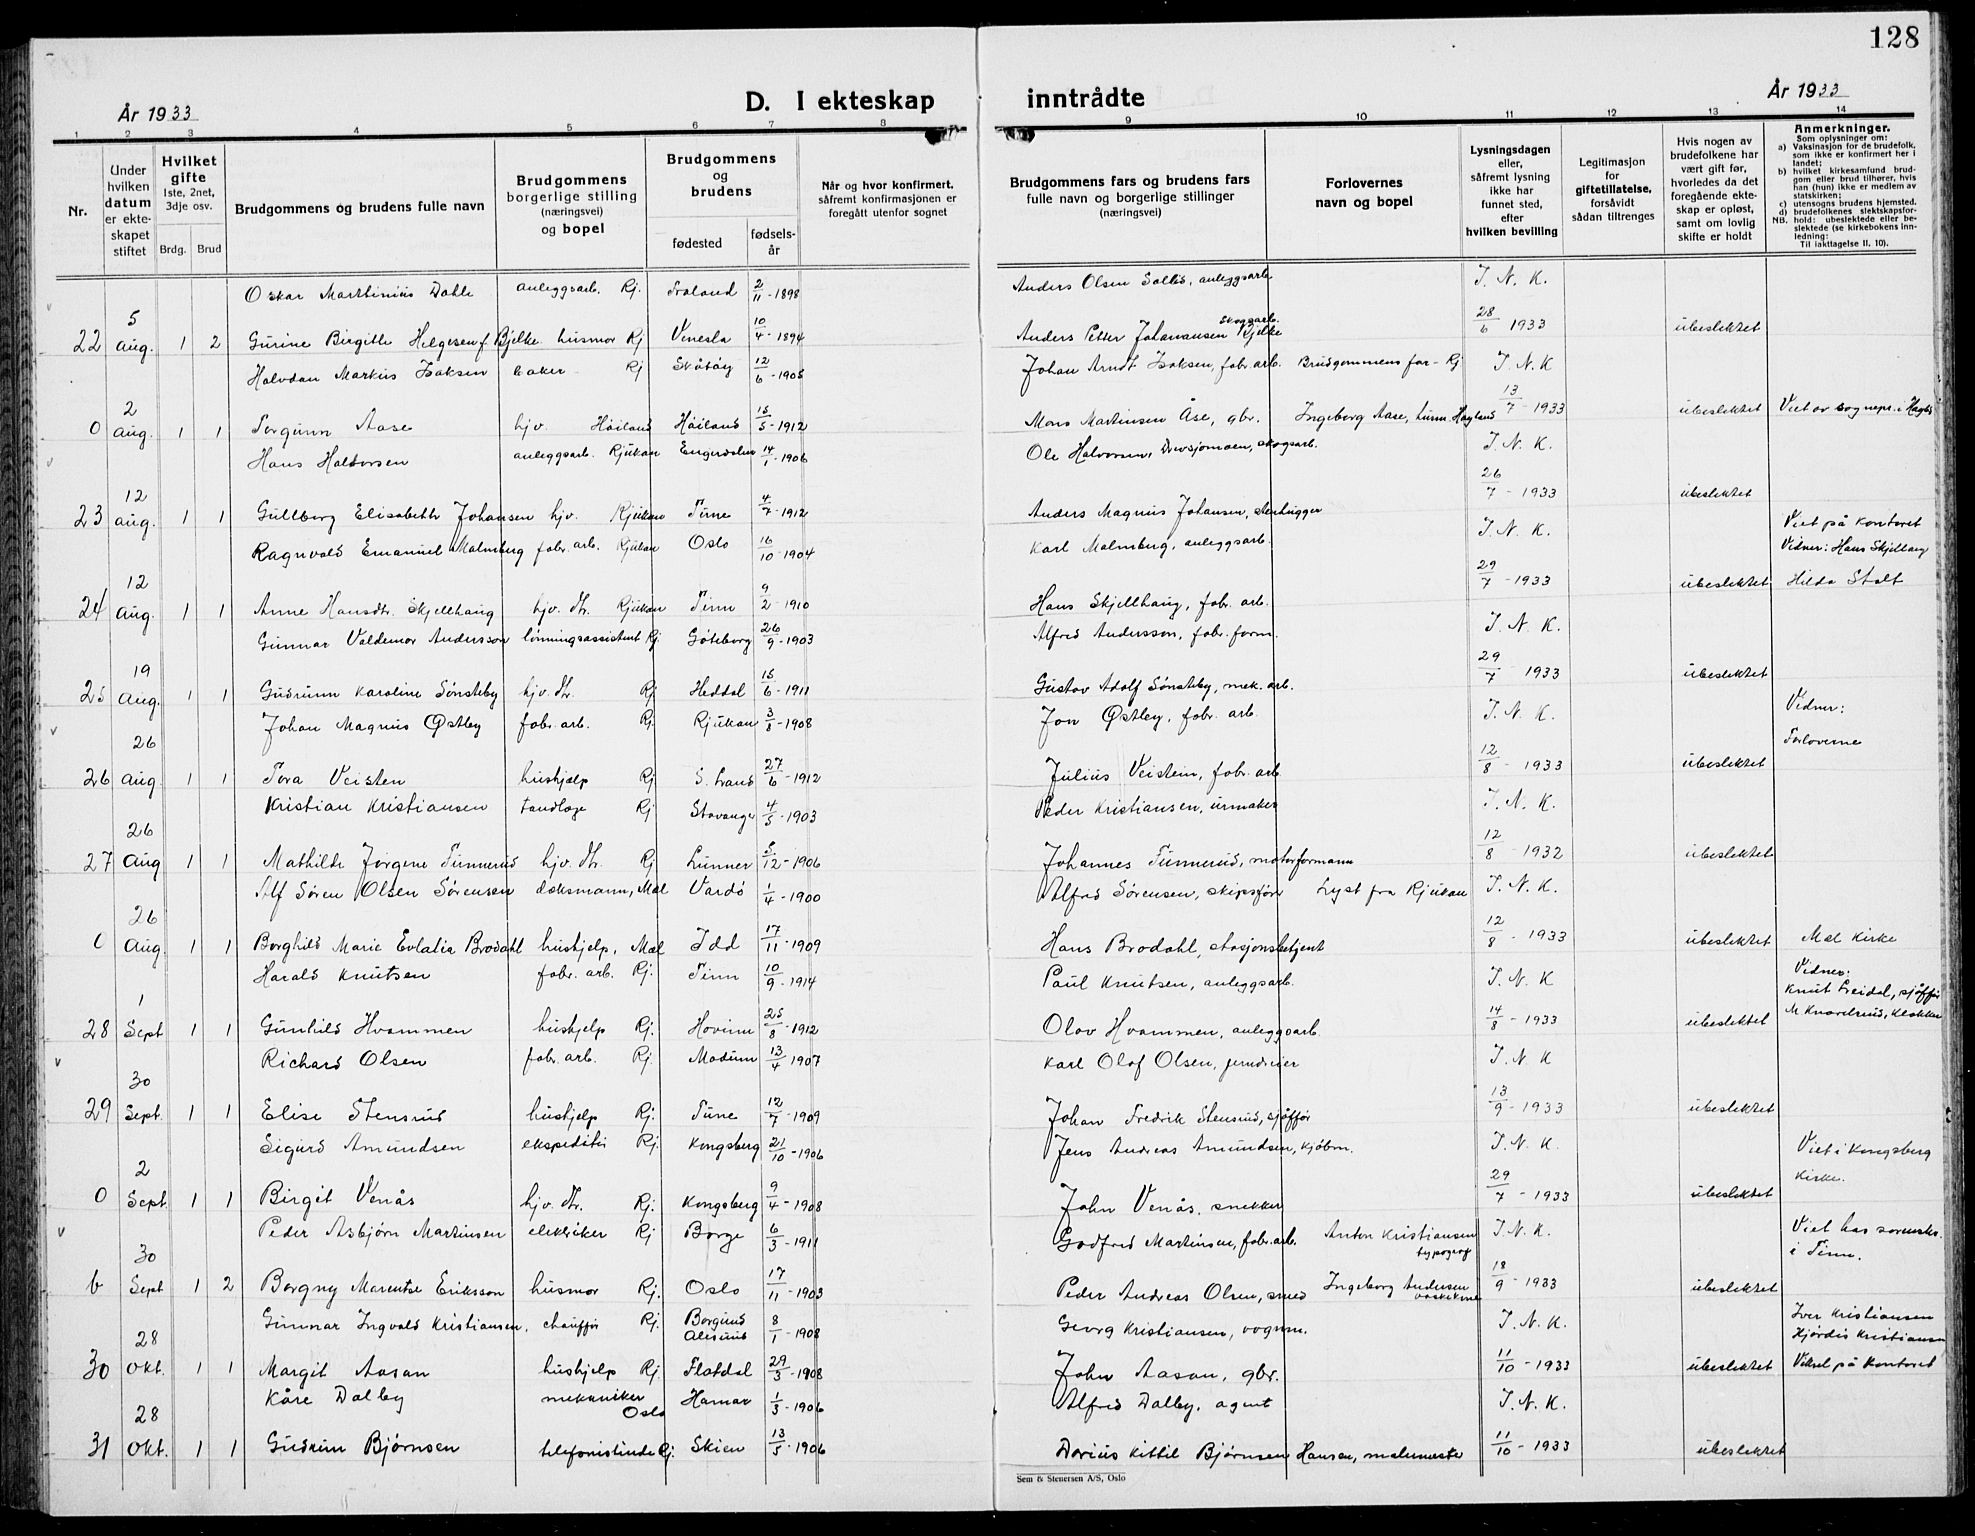 128
År 1933
D. I ekteskap inntrådte
År 1933
1 2 3 4 5 6 7 8 9 10 11 12 13 14
Nr.
Under hvilken datum er ekteskapet stiftet
Hvilket gifte
1ste, 2net, 3dje osv.
Brdg. Brud
Brudgommens og brudens fulle navn
Brudgommens borgerlige stilling (næringsvei) og bopel
Brudgommens og brudens
fødested
fødselsår
Når og hvor konfirmert, såfremt konfirmasjonen er foregått utenfor sognet
Brudgommens fars og brudens fars fulle navn og borgerlige stillinger (næringsvei)
Forlovernes navn og bopel
Lysningsdagen eller, såfremt lysning ikke har funnet sted, efter hvilken bevilling
Legitimasjon for giftetillatelse, forsåvidt sådan tiltrenges
Hvis nogen av brudefolkene har vært gift før, hvorledes da det foregående ekteskap er opløst, samt om lovlig skifte er holdt
Anmerkninger.
Som oplysninger om:
a) Vaksinasjon for de brudefolk, som ikke er konfirmert her i landet;
b) hvilket kirkesamfund brudgom eller brud tilhører, hvis han (hun) ikke er medlem av statskirken;
c) utensogns brudens hjemsted.
d) brudefolkenes slektskapsforhold: ubeslektede eller beslektede (se kirkebokens innledning:
NB. Til iakttagelse II, 10).
Oskar Marthinius Dahle anleggsarb. Rj. Froland 2/11-1898 Anders Olsen, anleggsarb. I. N. K.
22 5 Aug. 1 2 Gurine Birgitte Helgesen f. Bjelke husmor Rj Venesla 10/4-1894 Anders Petter Johannesen Bjelke skogsarb. 28/6 1933 ubeslektet
Halvdan Markus Isaksen baker Rj Skåtøy 12/6-1905 Johan Arndt Isaksen, fabr. arb. Brudgommens far - Rj I. N. K
0 2 Aug. 1 1 Torgunn Aase hjv. Høiland Høiland 15/5-1912 Mons Martinsen Åse, gbr. Ingeborg Aase, 13/7-1933 ubeslektet Viet av sognepr. i
Hans Halvorsen anleggsarb. Rjukan Engerdalen 14/1-1906 Ole Halvorsen, Drevsjømoen, skogsarb. I. N. K.
23 12 Aug. 1 1 Gullborg Elisabeth Johansen hjv. Rjukan Tune 4/7-1912 Anders Magnus Johansen, stenhugger 26/7-1933 ubeslektet
Ragnvald Emanuel Malmberg fabr. arb. Rjukan Oslo 16/10-1904 Karl Malmberg, anleggsarb. I. N. K. Viet på kontoret
Vidner: Hans Skjelhaug
24 12 Aug. 1 1 Anne Hansdtr. Skjellhaug hjv. dtr. Rjukan Tinn 9/2-1910 Hans Skjellhaug, fabr. arb. 29/7-1933 ubeslektet Hilda Stolt
Gunnar Valdemar Andersson lønningsassistent Rj. Göteborg 26/9-1903 Alfred Andersson, fabr. form. I. N. K.
25 19 Aug. 1 1 Gudrunn Karoline Sønsteby hjv. dtr. Rj Heddal 15/6-1911 Gustav Adolf Sønsteby, mek. arb. 29/7 1933 ubeslektet
Johan Magnus Østby fabr. arb. Rj. Rjukan 3/8-1908 Jon Østby, fabr. arb. I. N. K. Vidner:
Forloverne
26 26 Aug 1 1 Tora Veisten hushjelp Rj S. Land 27/6-1912 Julius Veistein, fabr. arb. 12/8-1933 ubeslektet
Kristian Kristiansen tandlæge Rj Stavanger 4/5-1903 Peder Kristiansen, urmaker I. N. K.
27 26 Aug 1 1 Mathilde Jørgine Tunnerud hjv. dtr. Rj Lunner 5/12-1906 Johannes Tunnerud, motorformann 12/8-1932 ubeslektet
Alf Søren Olsen Sørensen doksmann, Mæl Vardø 1/4-1900 Alfred Sørensen, skipsfør Lyst fra Rjukan I. N. K.
0 26 Aug. 1 1 Borghild Marie Evlalia Brodahl hushjelp, Mæl Idd 17/11-1909 Hans Brodahl, stasjonsbetjent 12/8-1933 ubeslektet Mæl kirke
Harald Knutsen fabr. arb. Rj. Tinn 10/9-1914 Paul Knutsen, anleggsarb. I. N. K Vidner:
Knut Leidal, sjåffør
28 1 Sept 1 1 Gunhild Hvammen hushjelp Rj. Hovinn 25/8-1912 Olav Hvammen, anleggsarb. 14/8-1933 ubeslektet M Knarelsrud, klokker
Richard Olsen fabr. arb. Rj. Modum 13/4 1907 Karl Olof Olsen, I. N. K
29 30 Sept. 1 1 Elise Stensrud hushjelp Rj. Tune 12/7-1909 Johan Fredrik Stensrud, sjåffør 13/9-1933 ubeslektet
Sigurd Amundsen ekspeditør Rj. Kongsberg 21/10-1906 Jens Andreas Amundsen, kjøbm. I. N. K. Viet i Kongsberg
Kirke.
0 2 Sept. 1 1 Birgit Venås hjv. dtr. Rj. Kongsberg 9/4-1908 John Venås, snekker 29/7-1933 ubeslektet
Peder Asbjørn Martinsen elektriker Rj Borge 6/3-1911 Godfred Martinsen, fabr. arb. Anton Kristiansen typograf I. N. K. Viet hos sorensk.
i Tinn.
b 30 Sept 1 2 Borgny Marentse Eriksson husmor Rj. Oslo 17/11-1903 Peder Andreas Olsen, smed Ingeborg Andersen vaskekone 18/9-1933 ubeslektet
Gunnar Ingvald Kristiansen, chauffør Rj. Borgund Ålesund 8/1-1908 Georg Kristiansen, vognm. I. N. K. Iver Kristiansen
Hjørdis Kristiansen
30 28 Okt. 1 1 Margit Aasan hushjelp Rj. Flatdal 29/3-1908 John Aasan, gbr. 11/10-1933 ubeslektet Viksel på Kontoret
Kåre Dalby mekaniker Oslo Hamar 1/3-1906 Alfred Dalby, agent I. N. K.
31 28 Okt. 1 1 Gudrun Bjørnsen telefonistinde Rj. Skien 13/5-1906 Darius Kittil Bjørnsen Hansen, malermester 11/10-1933 ubeslektet
Sem & Stenersen A/S, Oslo